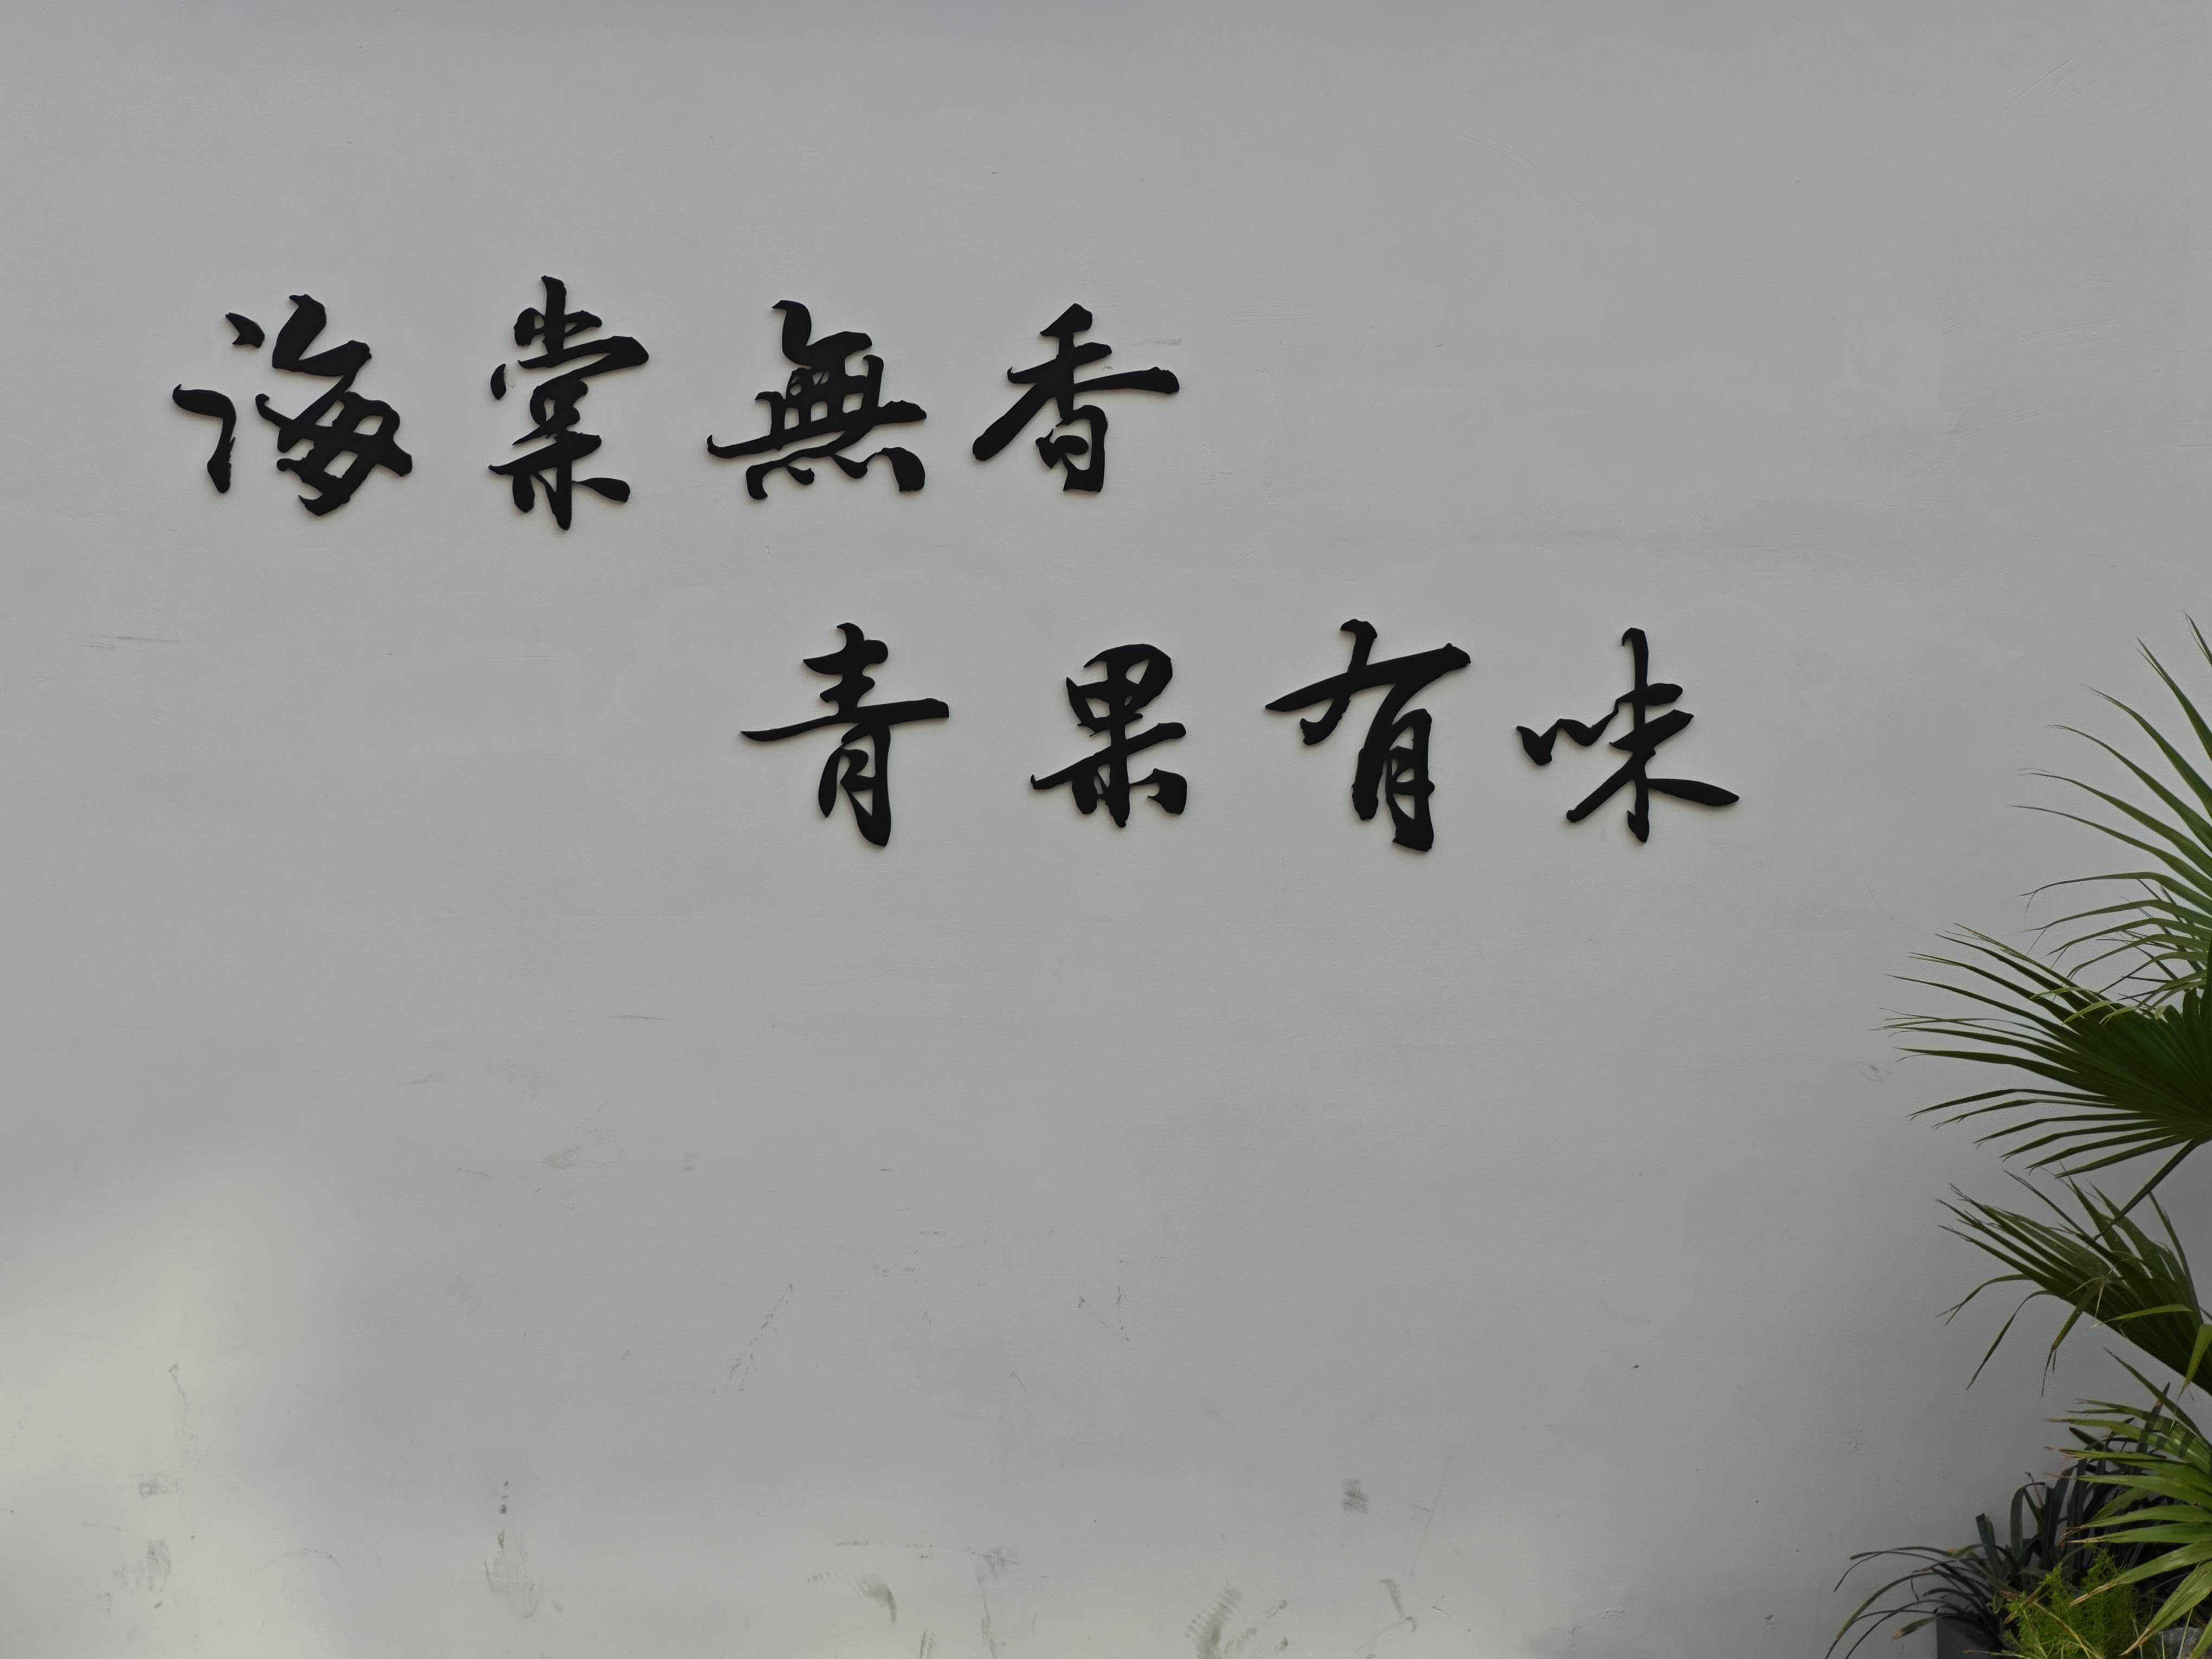 海棠無香
青果有味